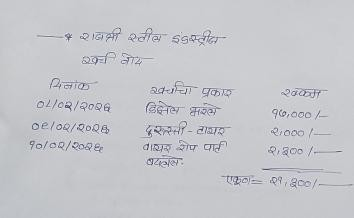 राजश्री स्टील इंडस्ट्रीज
खर्च नोंद
दिनांक खर्चाचा प्रकार रक्कम
०८/०२/२०२६ डिझेल भरले १७,०००/-
०९/०२/२०२६ दुरुस्ती - वायर २,०००/-
१०/०२/२०२६ वायर रोप पार्ट २,३००/-
बदलले.
एकूण = २१,३००/-